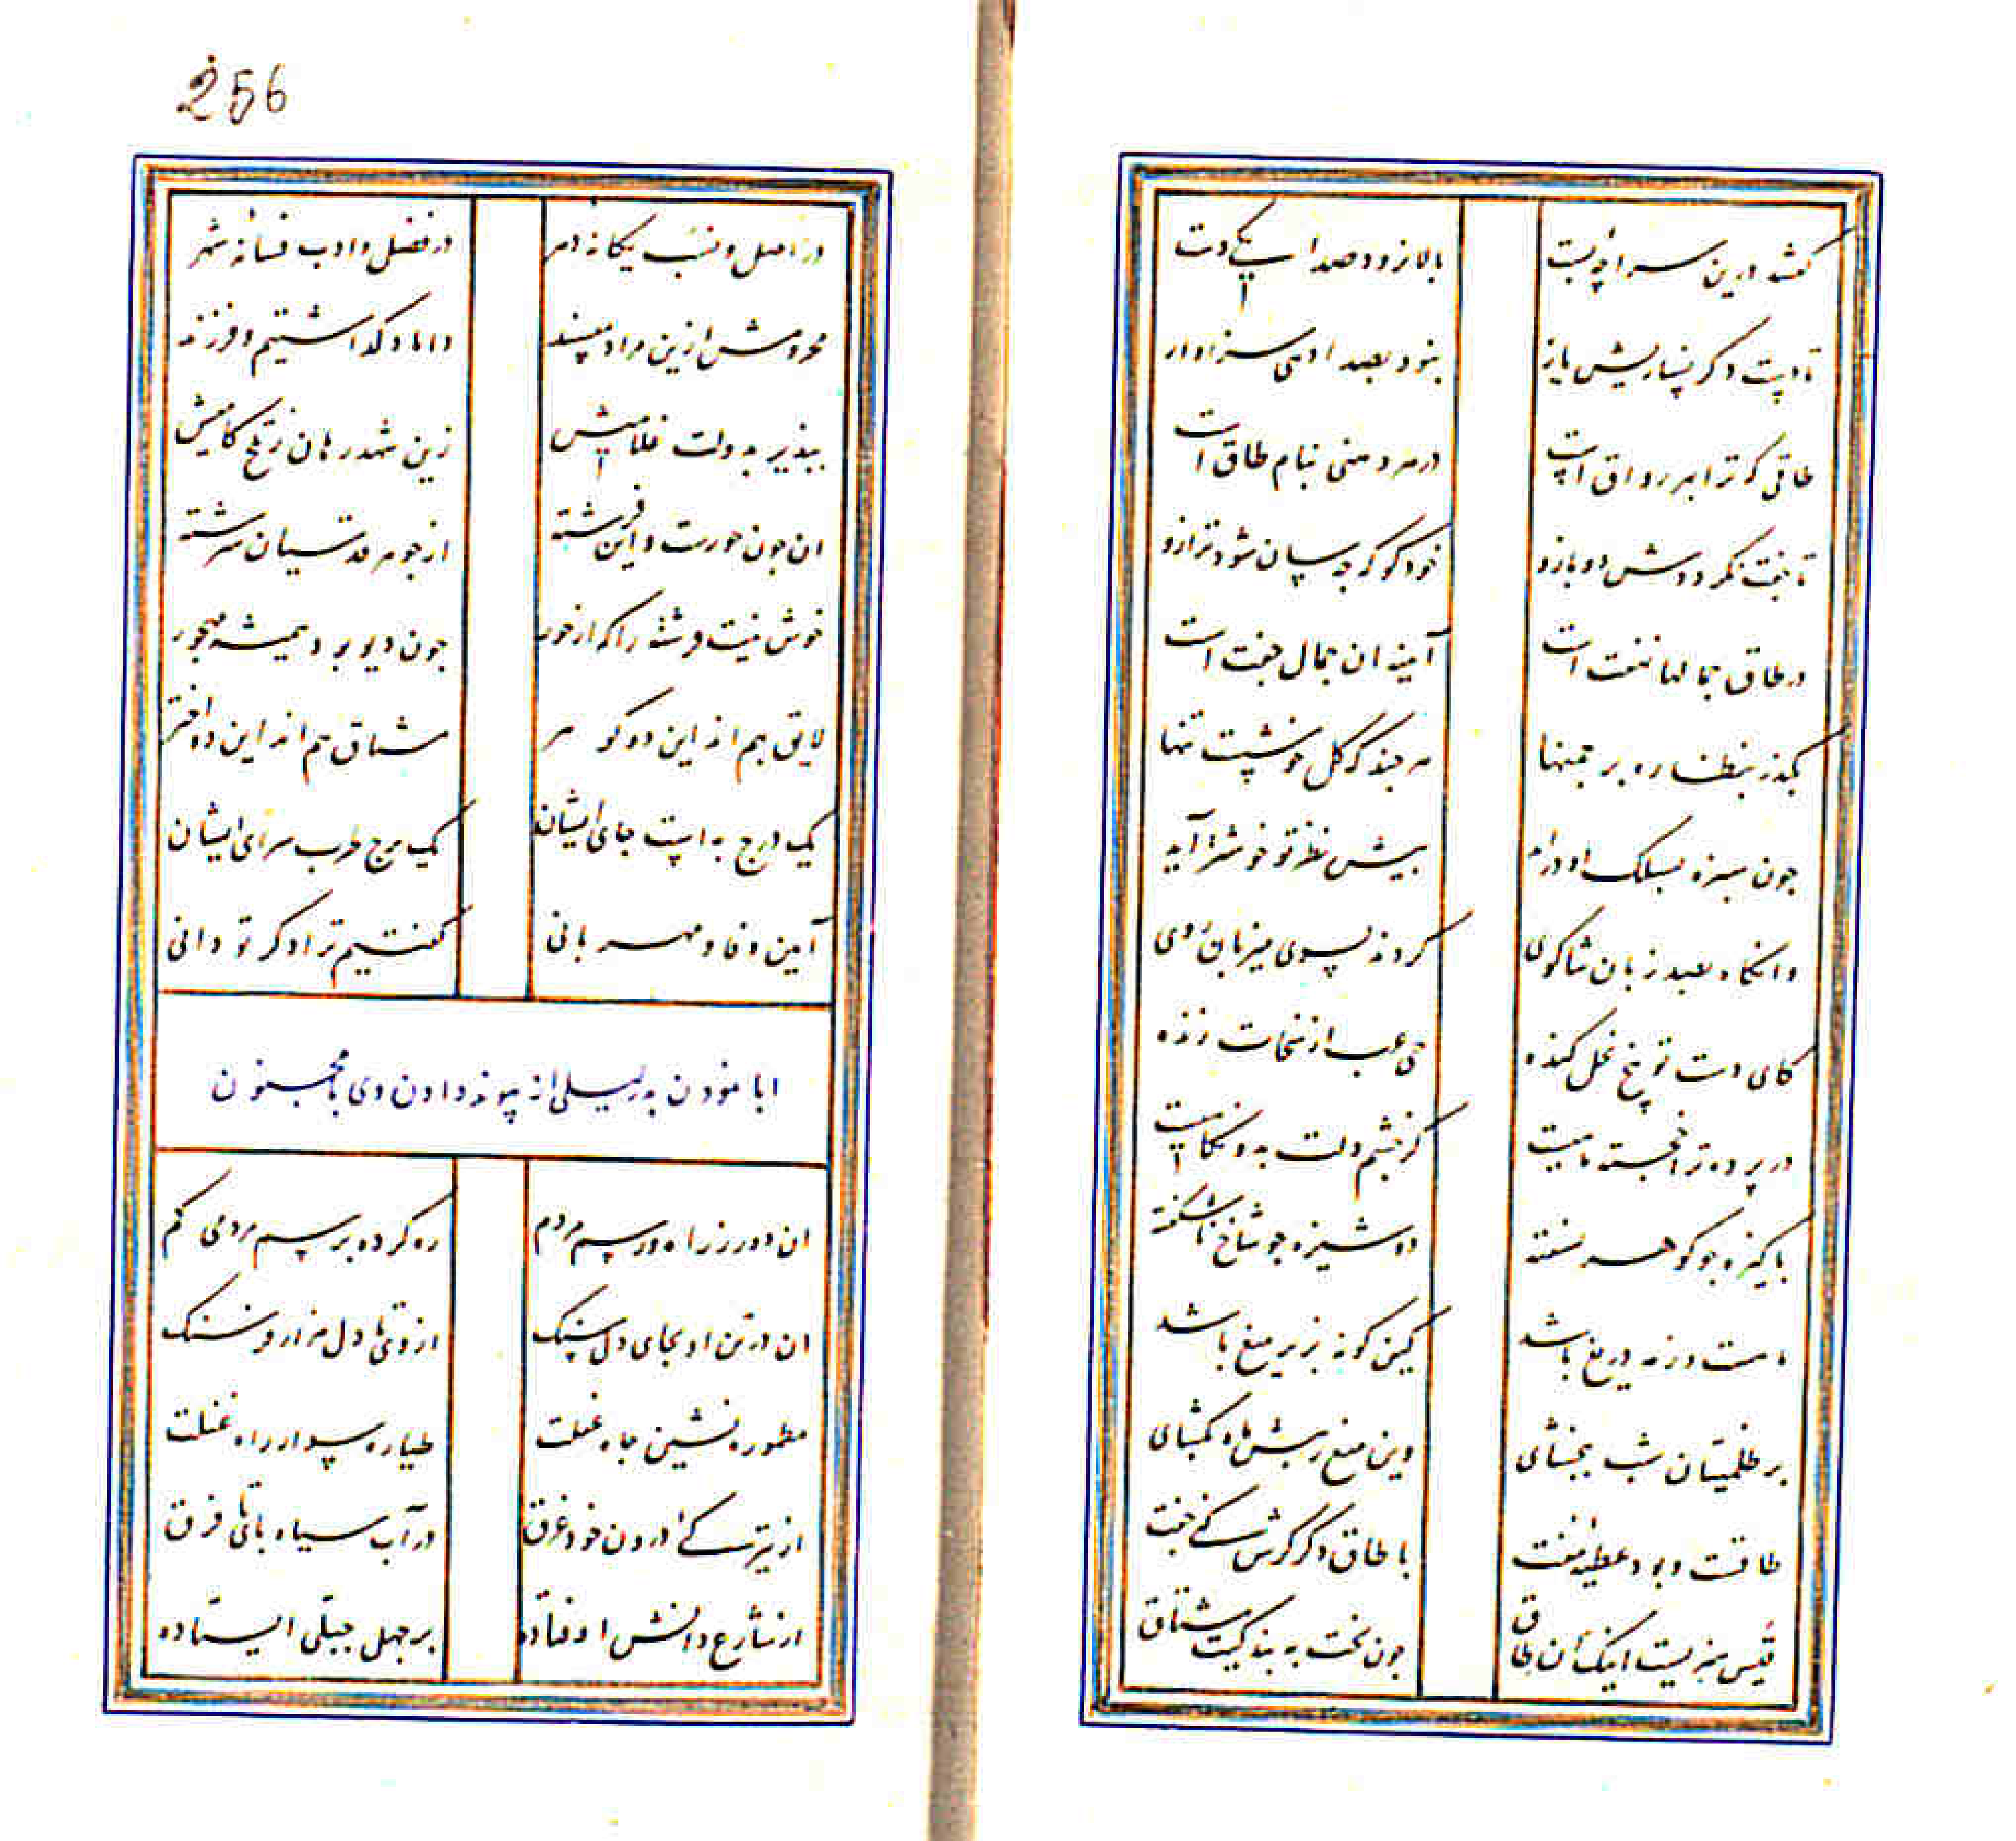 256
گفتند درین سراچه پست
بالا نرود صدا ز یک دست
تا دست دگر نسازیش یار
نبود بصدا دهی سزاوار
طاقی که ترا بر رواق است
در مردمی تمام طاق است
تا جفت نگرددش دو بازو
خود گو که چه سان شود ترازو
در طاق جمالها نهفت است
آیینه آن جمال جفت است
بگذر بنظاره بر چمنها
هر چند که گل خوشست تنها
چون سبزه بسلک او درآید
پیش نظر تو خوشتر آید
وانگاه بصد زبان ثناگوی
کردند بسوی میزبان روی
کای دست تو بیخ بخل کنده
حی عرب از سخات زنده
در پرده ترا خجسته ماهیست
کز چشم دلت بدو نگاهیست
پاکیزه چو گوهر نسفته
دوشیزه چو شاخ ناشکفته
ماهست و ز مه دریغ باشد
کین گونه بزیر میغ باشد
بر ظلمتیان شب ببخشای
وین میغ ز پیش ماه بگشای
طاقست و بود عطیه مفت
با طاق دگر گرش کنی جفت
قیس هنریست اینک آن طاق
چون بخت به بندگیت مشتاق
در اصل و نسب یگانه دهر
در فضل و ادب فسانه شهر
محرومش ازین مراد مپسند
داماد گذاشتیم و فرزند
بپذیر به دولت غلامیش
زین شهد رهان ز تلخ کامیش
آن چون حورست و این فرشته
از جوهر قدسیان سرشته
خوش نیست فرشته را که از حور
چون دیو بود همیشه مهجور
لایق بهم اند این دو گوهر
مشتاق هم اند این دو اختر
یک درج به است جای ایشان
یک برج طرب سرای ایشان
آیین وفا و مهربانی
گفتیم ترا دگر تو دانی
ابا نمودن پدر لیلی از پیوند دادن وی با مجنون
آن دور ز راه و رسم مردم
ره کرده برسم مردمی گم
آن در تن او بجای دل سنگ
از وی تا دل هزار فرسنگ
مطموره نشین چاه غفلت
طیاره سوار راه غفلت
از تیرگی درون خود غرق
در آب سیاه پای تا فرق
از شارع دانش اوفتاده
بر جهل جبلی ایستاده